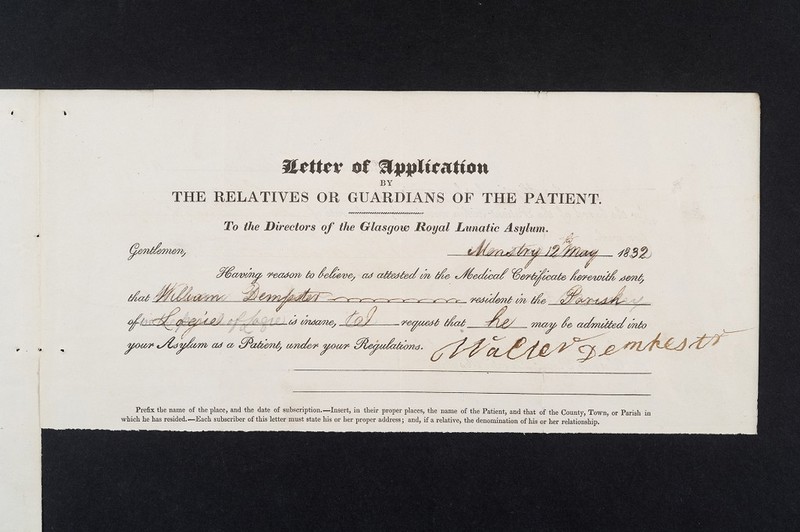 Letter of Application
BY
THE RELATIVES OR GUARDIANS OF THE PATIENT.
To the Directors of the Glasgow Royal Lunatic Asylum.
Gentlemen, Menstry 12th May 1832
Having reason to believe, as attested in the Medical Certificate herewith sent,
that William Dempster resident in the Parish
of Logie is insane, request that he may be admitted into
your Asylum as a Patient, under your Regulations. Walter Demkestr
Prefix the name of the place, and the date of subscription.—Insert, in their proper places, the name of the Patient, and that of the County, Town, or Parish in
which he has resided.—Each subscriber of this letter must state his or her proper address; and, if a relative, the denomination of his or her relationship.